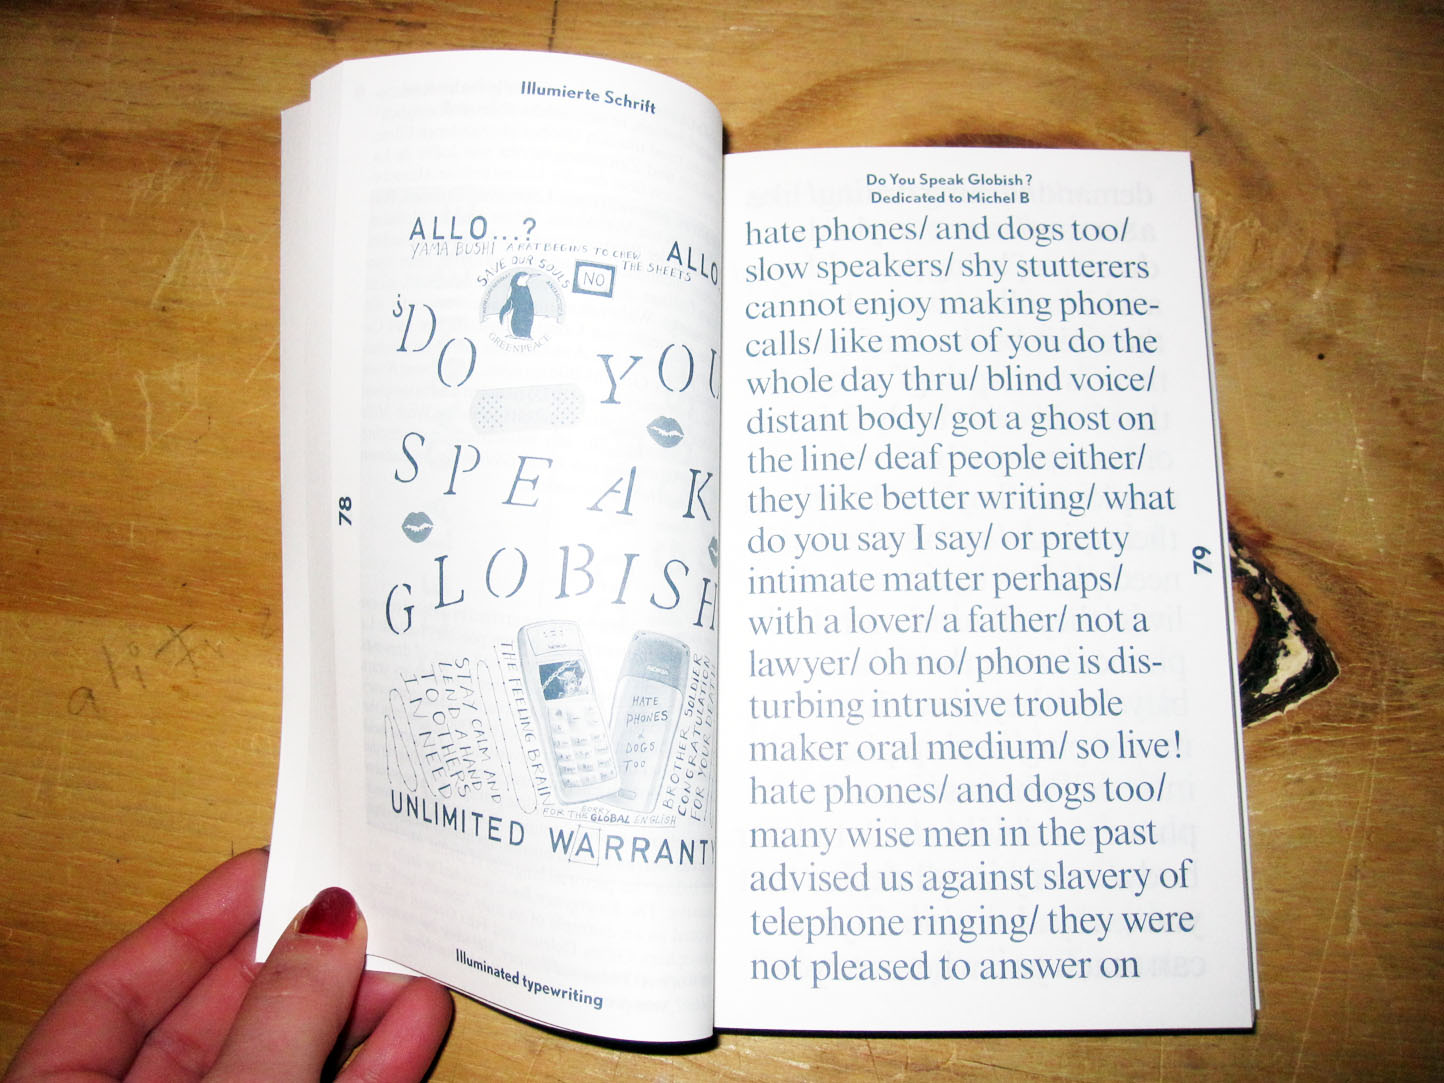 Illumierte Schrift
ALLO...?
YAMA BUSHI
A RAT BEGINS TO CHEW
THE SHEETS
ALLO
SAVE OUR SOULS
NO
GREENPEACE
¿DO YOU
SPEAK
GLOBISH
NOKIA
NOKIA
HATE
PHONES
&
DOGS
TOO
STAY CALM AND
LEND A HAND
TO OTHERS
IN NEED
THE FEELING BRAIN
BROTHER SOLDIER
CONGRATULATION
FOR YOUR DEATH
SORRY
FOR THE GLOBAL ENGLISH
UNLIMITED WARRANTY
78
Illuminated typewriting
Do You Speak Globish?
Dedicated to Michel B
hate phones/ and dogs too/
slow speakers/ shy stutterers
cannot enjoy making phone-
calls/ like most of you do the
whole day thru/ blind voice/
distant body/ got a ghost on
the line/ deaf people either/
they like better writing/ what
do you say I say/ or pretty
intimate matter perhaps/
with a lover/ a father/ not a
lawyer/ oh no/ phone is dis-
turbing intrusive trouble
maker oral medium/ so live!
hate phones/ and dogs too/
many wise men in the past
advised us against slavery of
telephone ringing/ they were
not pleased to answer on
79
alix